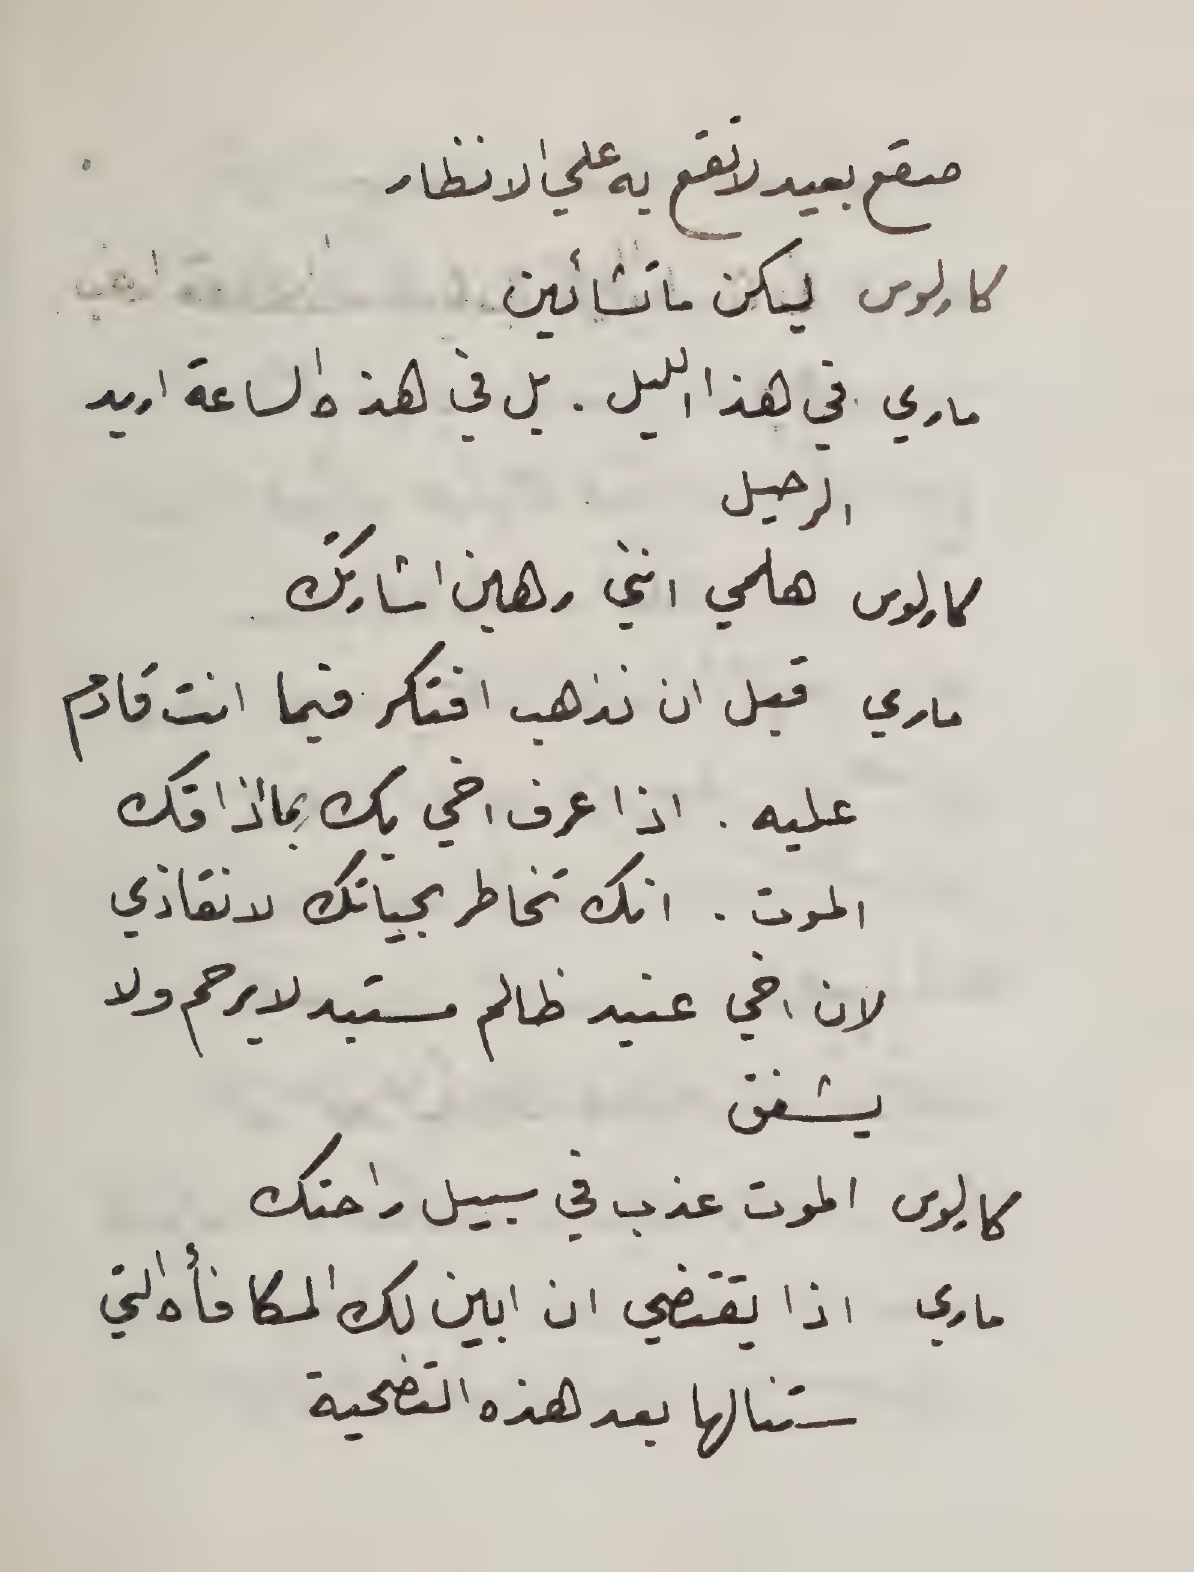 صقع بعيد لا تقع به علي الانظار
كارلوس ليكن ما تشأين
ماري في هذا الليل . بل في هذه الساعة اريد
الرحيل
كارلوس هلمي انني رهين اشارتك
ماري قبل ان نذهب افتكر فيما انت قادم
عليه . اذا عرف اخي بك بما اذاقك
الموت . انك تخاطر بحياتك لانقاذي
لان اخي عنيد ظالم مستبد لا يرحم ولا
يشفق
كارلوس الموت عذب في سبيل راحتك
ماري اذا يقتضي ان ابين لك المكافأه التي
ستنالها بعد هذه التضحية